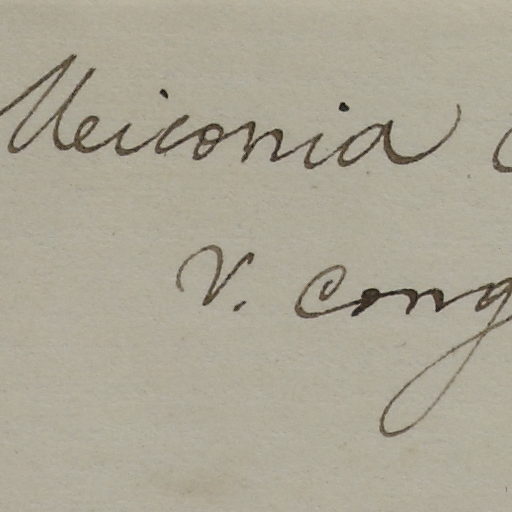 Meiconia C
v. cong